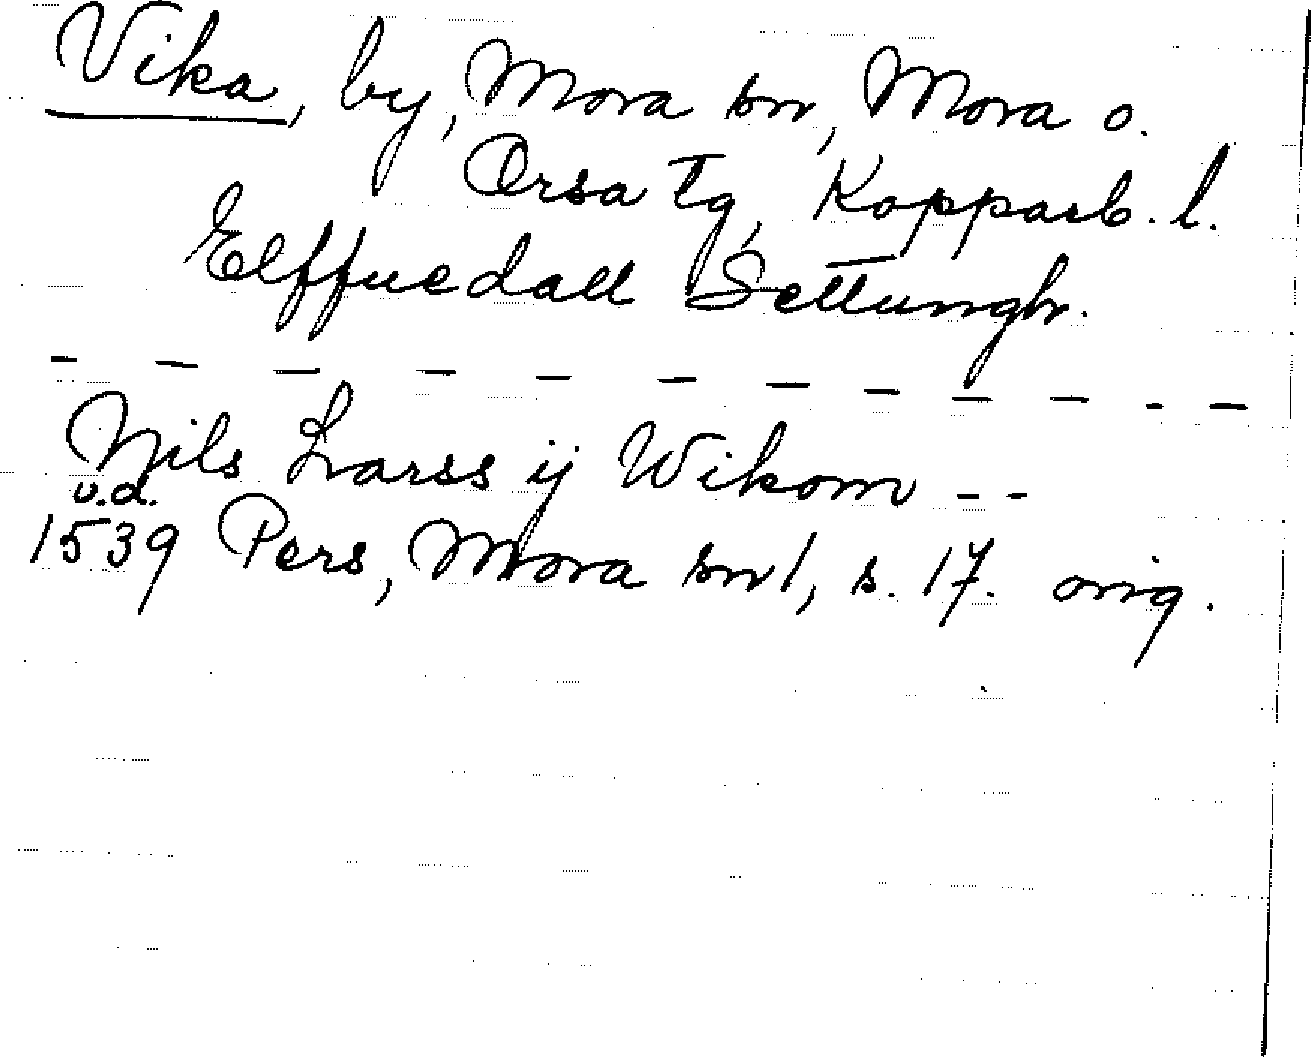 Vika, by, Mora sn, Mora o.
Orsa tg, Kopparb. l.
Elffuedall Settungh.
— — — — — — — — — — - —
Nils Larss ij Wikom - -
u.d.
1539 Pers, Mora sn 1, s. 17. orig.